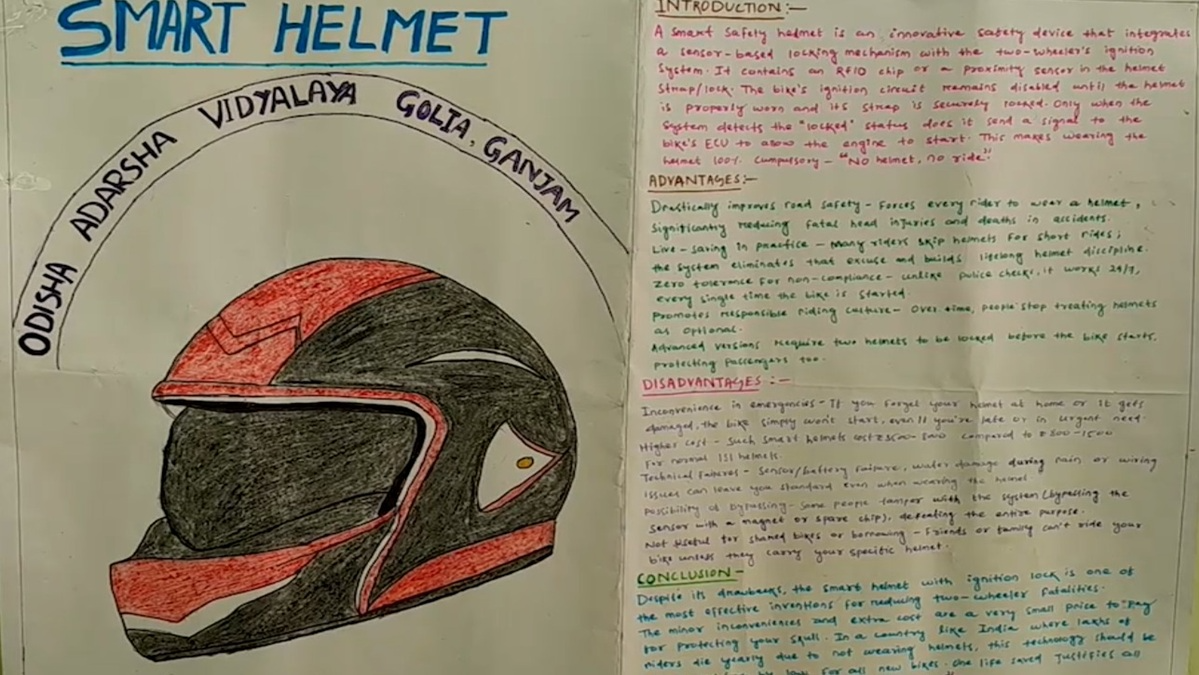 SMART HELMET
ODISHA ADARSHA VIDYALAYA GOLIA, GANJAM
INTRODUCTION:-
A smart safety helmet is an innovative safety device that integrates
a sensor-based locking mechanism with the two-wheeler's ignition
system. It contains an RFID chip or a proximity sensor in the helmet
strap/lock. The bike's ignition circuit remains disabled until the helmet
is properly worn and its strap is securely locked. Only when the
system detects the "locked" status does it send a signal to the
bike's ECU to allow the engine to start. This makes wearing the
helmet 100% Cumpulsory - "No helmet, no ride".
ADVANTAGES:-
Drastically improves road safety - Forces every rider to wear a helmet,
Significantly reducing fatal head injuries and deaths in accidents.
Live-saving in practice - Many riders skip helmets for short rides;
the system eliminates that excuse and builds lifelong helmet discipline.
Zero tolerance for non-compliance - unlike police checks, it works 24/7,
every single time the bike is started.
Promotes responsible riding culture - Over time, people stop treating helmets
as optional.
Advanced versions require two helmets to be locked before the bike starts,
protecting passengers too.
DISADVANTAGES:-
Inconvenience in emergencies - If you forget your helmet at home or it gets
damaged, the bike simply won't start, even if you're late or in urgent need.
Higher cost - such smart helmets cost ₹3500- compared to ₹800-1500
For normal ISI helmets.
Technical failures - Sensor/battery failure, water damage during rain or wiring
issues can leave you standard even when wearing the helmet
possibility of bypassing - Some people tamper with the system (bypassing the
sensor with a magnet or spare chip), defeating the entire purpose.
Not useful for shared bikes or borrowing - Friends or family can't ride your
bike unless they carry your specific helmet.
CONCLUSION-
Despite its drawbacks, the smart helmet with ignition lock is one of
the most effective inventions for reducing two-wheeler fatalities.
The minor inconveniences and extra cost are a very small price to pay
for protecting your skull. In a country like India where lakhs of
riders die yearly due to not wearing helmets, this technology should be
by law for all new bikes. One life saved justifies all